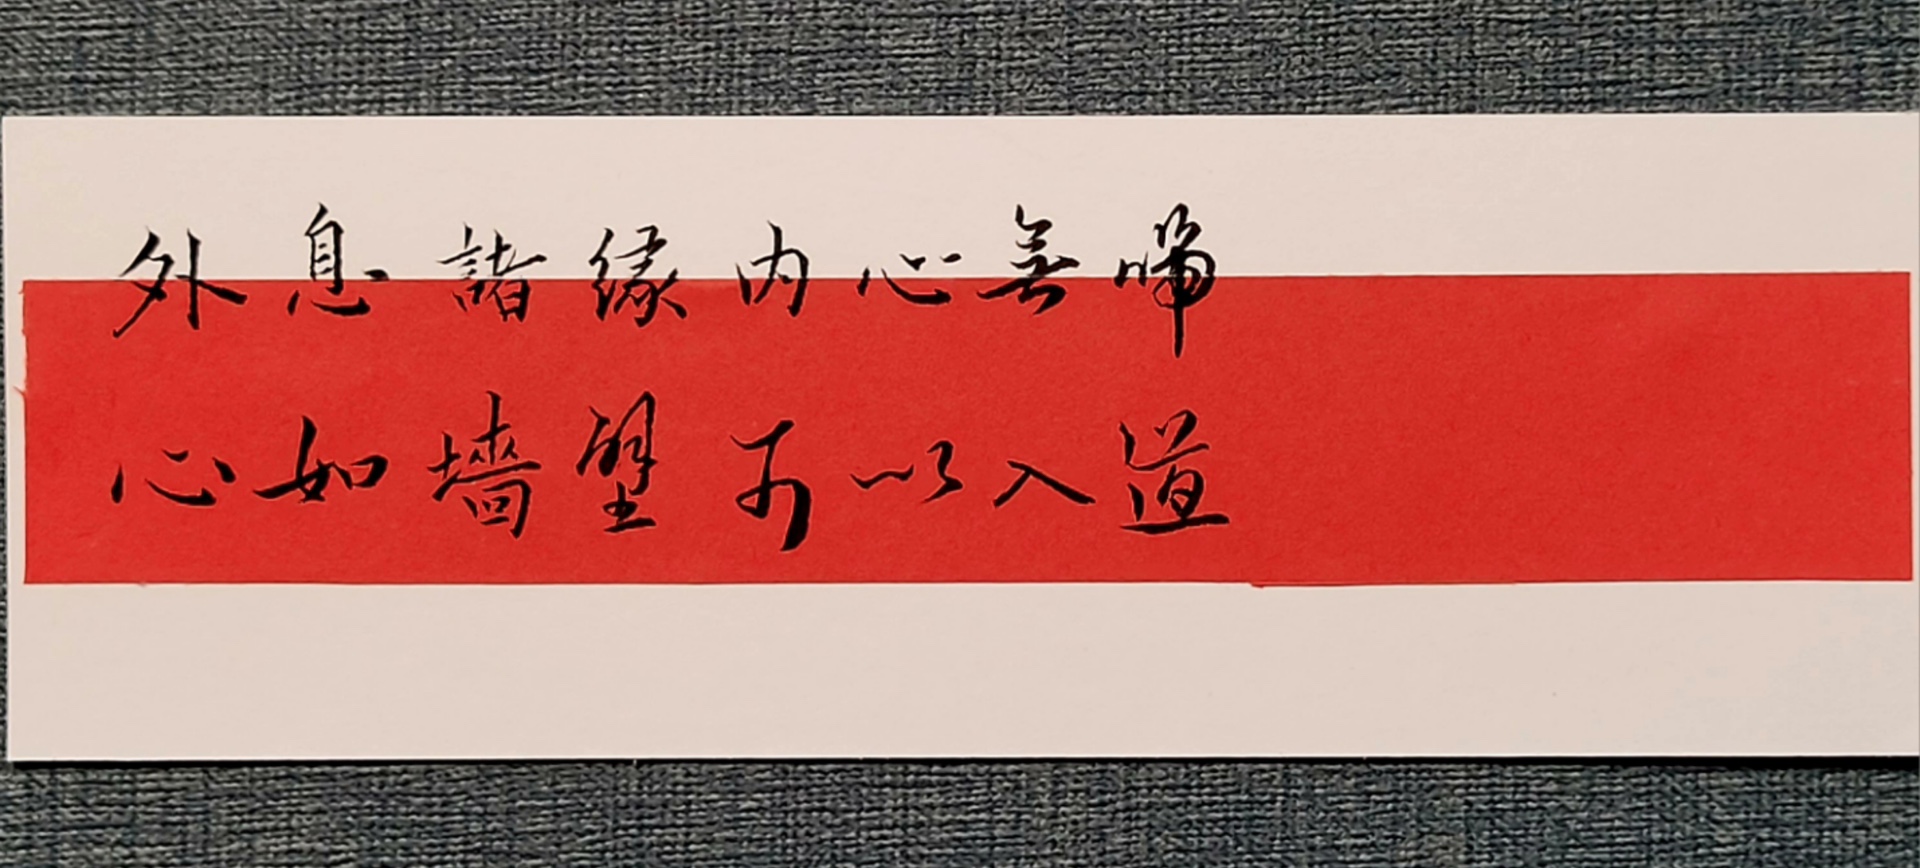 外息諸緣内心無啼
心如墻壁可以入道